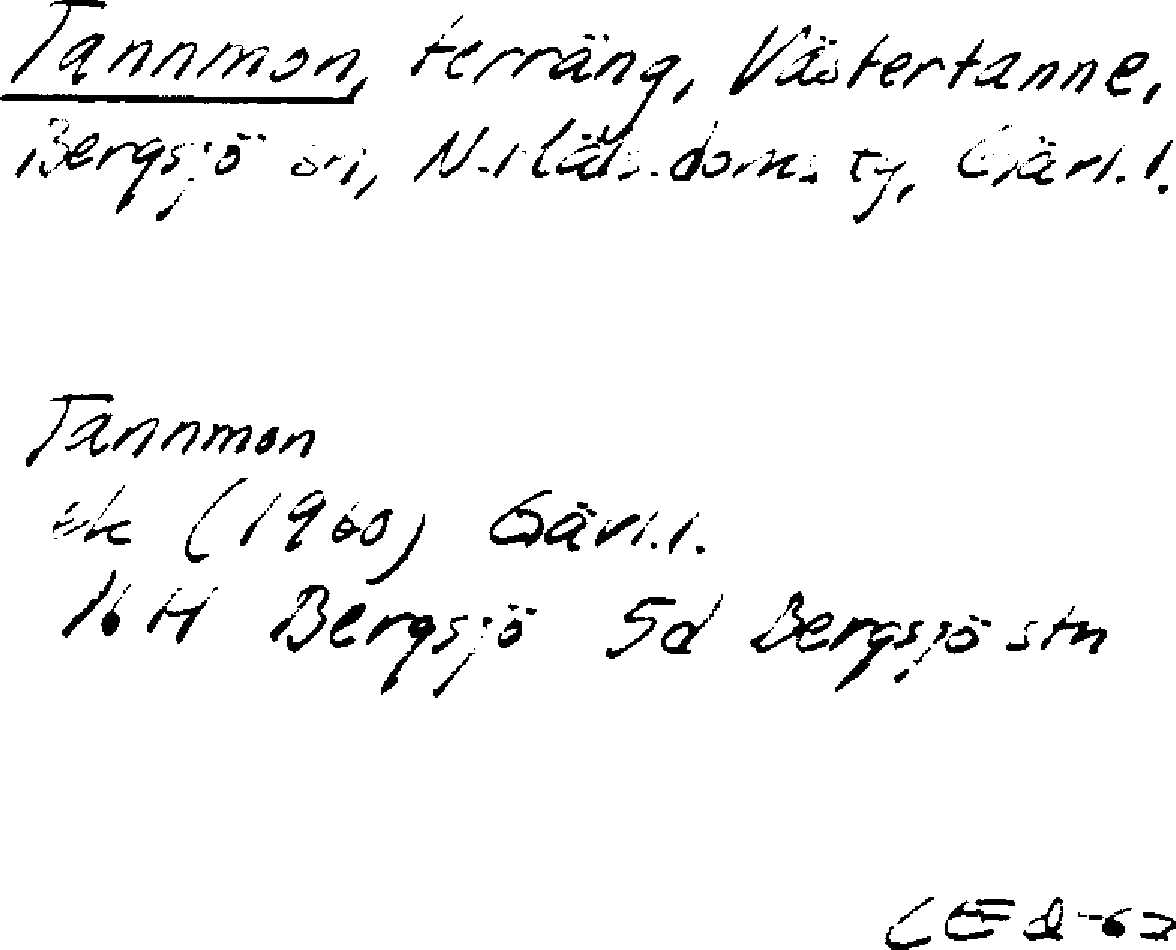 Tannmon, terräng, Västertanne,
Bergsjö sn, doms. Gävl.l.
Tannmon
ek (1960) Gävl.l.
16H Bergsjö 5d Bergsjö stn